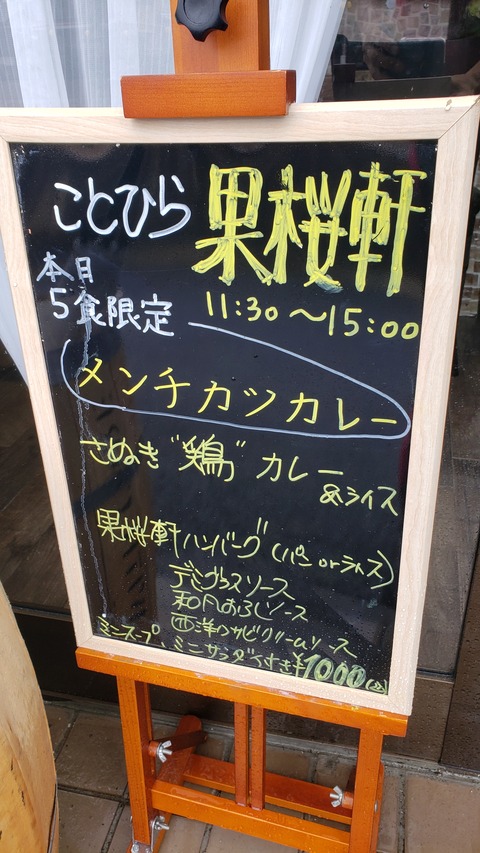 ことひら 果桜軒
11:30〜15:00
本日
5食限定
メンチカツカレー
さぬき"鶏"カレー
&ライス
果桜軒ハンバーグ(パンorライス)
デミグラスソース
和風おろしソース
西洋ワサビクリームソース
ミニスープ、ミニサラダつき ¥1000(込)